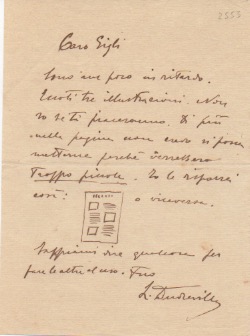 2553
Caro Gigli
Sono un poco in ritardo.
Eccoti tre illustrazioni. Non
so se ti piaceranno. Di più
nella pagina non credo si possan
metterne perché verrebbero
troppo piccole. Io le disporrei
così: o viceversa.
Sappiami dire qualcosa per
fare le altre al caso. Tuo
L. Dudreville